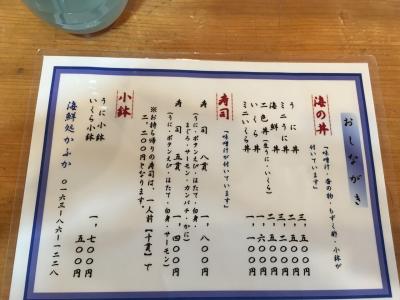 おしながき
海の丼
「味噌汁・香の物・もずく酢・小鉢が
付いています」
うに丼
ミニうに丼
海鮮丼
二色丼(生うに・いくら)
いくら丼
ミニいくら丼
寿司
「味噌汁が付いています」
寿司 八貫 一、八〇〇円
(うに・ボタンえび・ほたて・白身・
まぐろ・サーモン・カンパチ・かに)
寿司 五貫 一、四〇〇円
(うに・ボタンえび・ほたて・白身・サーモン)
※お持ち帰りの寿司は、一人前【十貫】で
二、二〇〇円となります。
小鉢
うに小鉢 一、七〇〇円
いくら小鉢 五〇〇円
海鮮処かふか 〇一六三-八六-一二二八